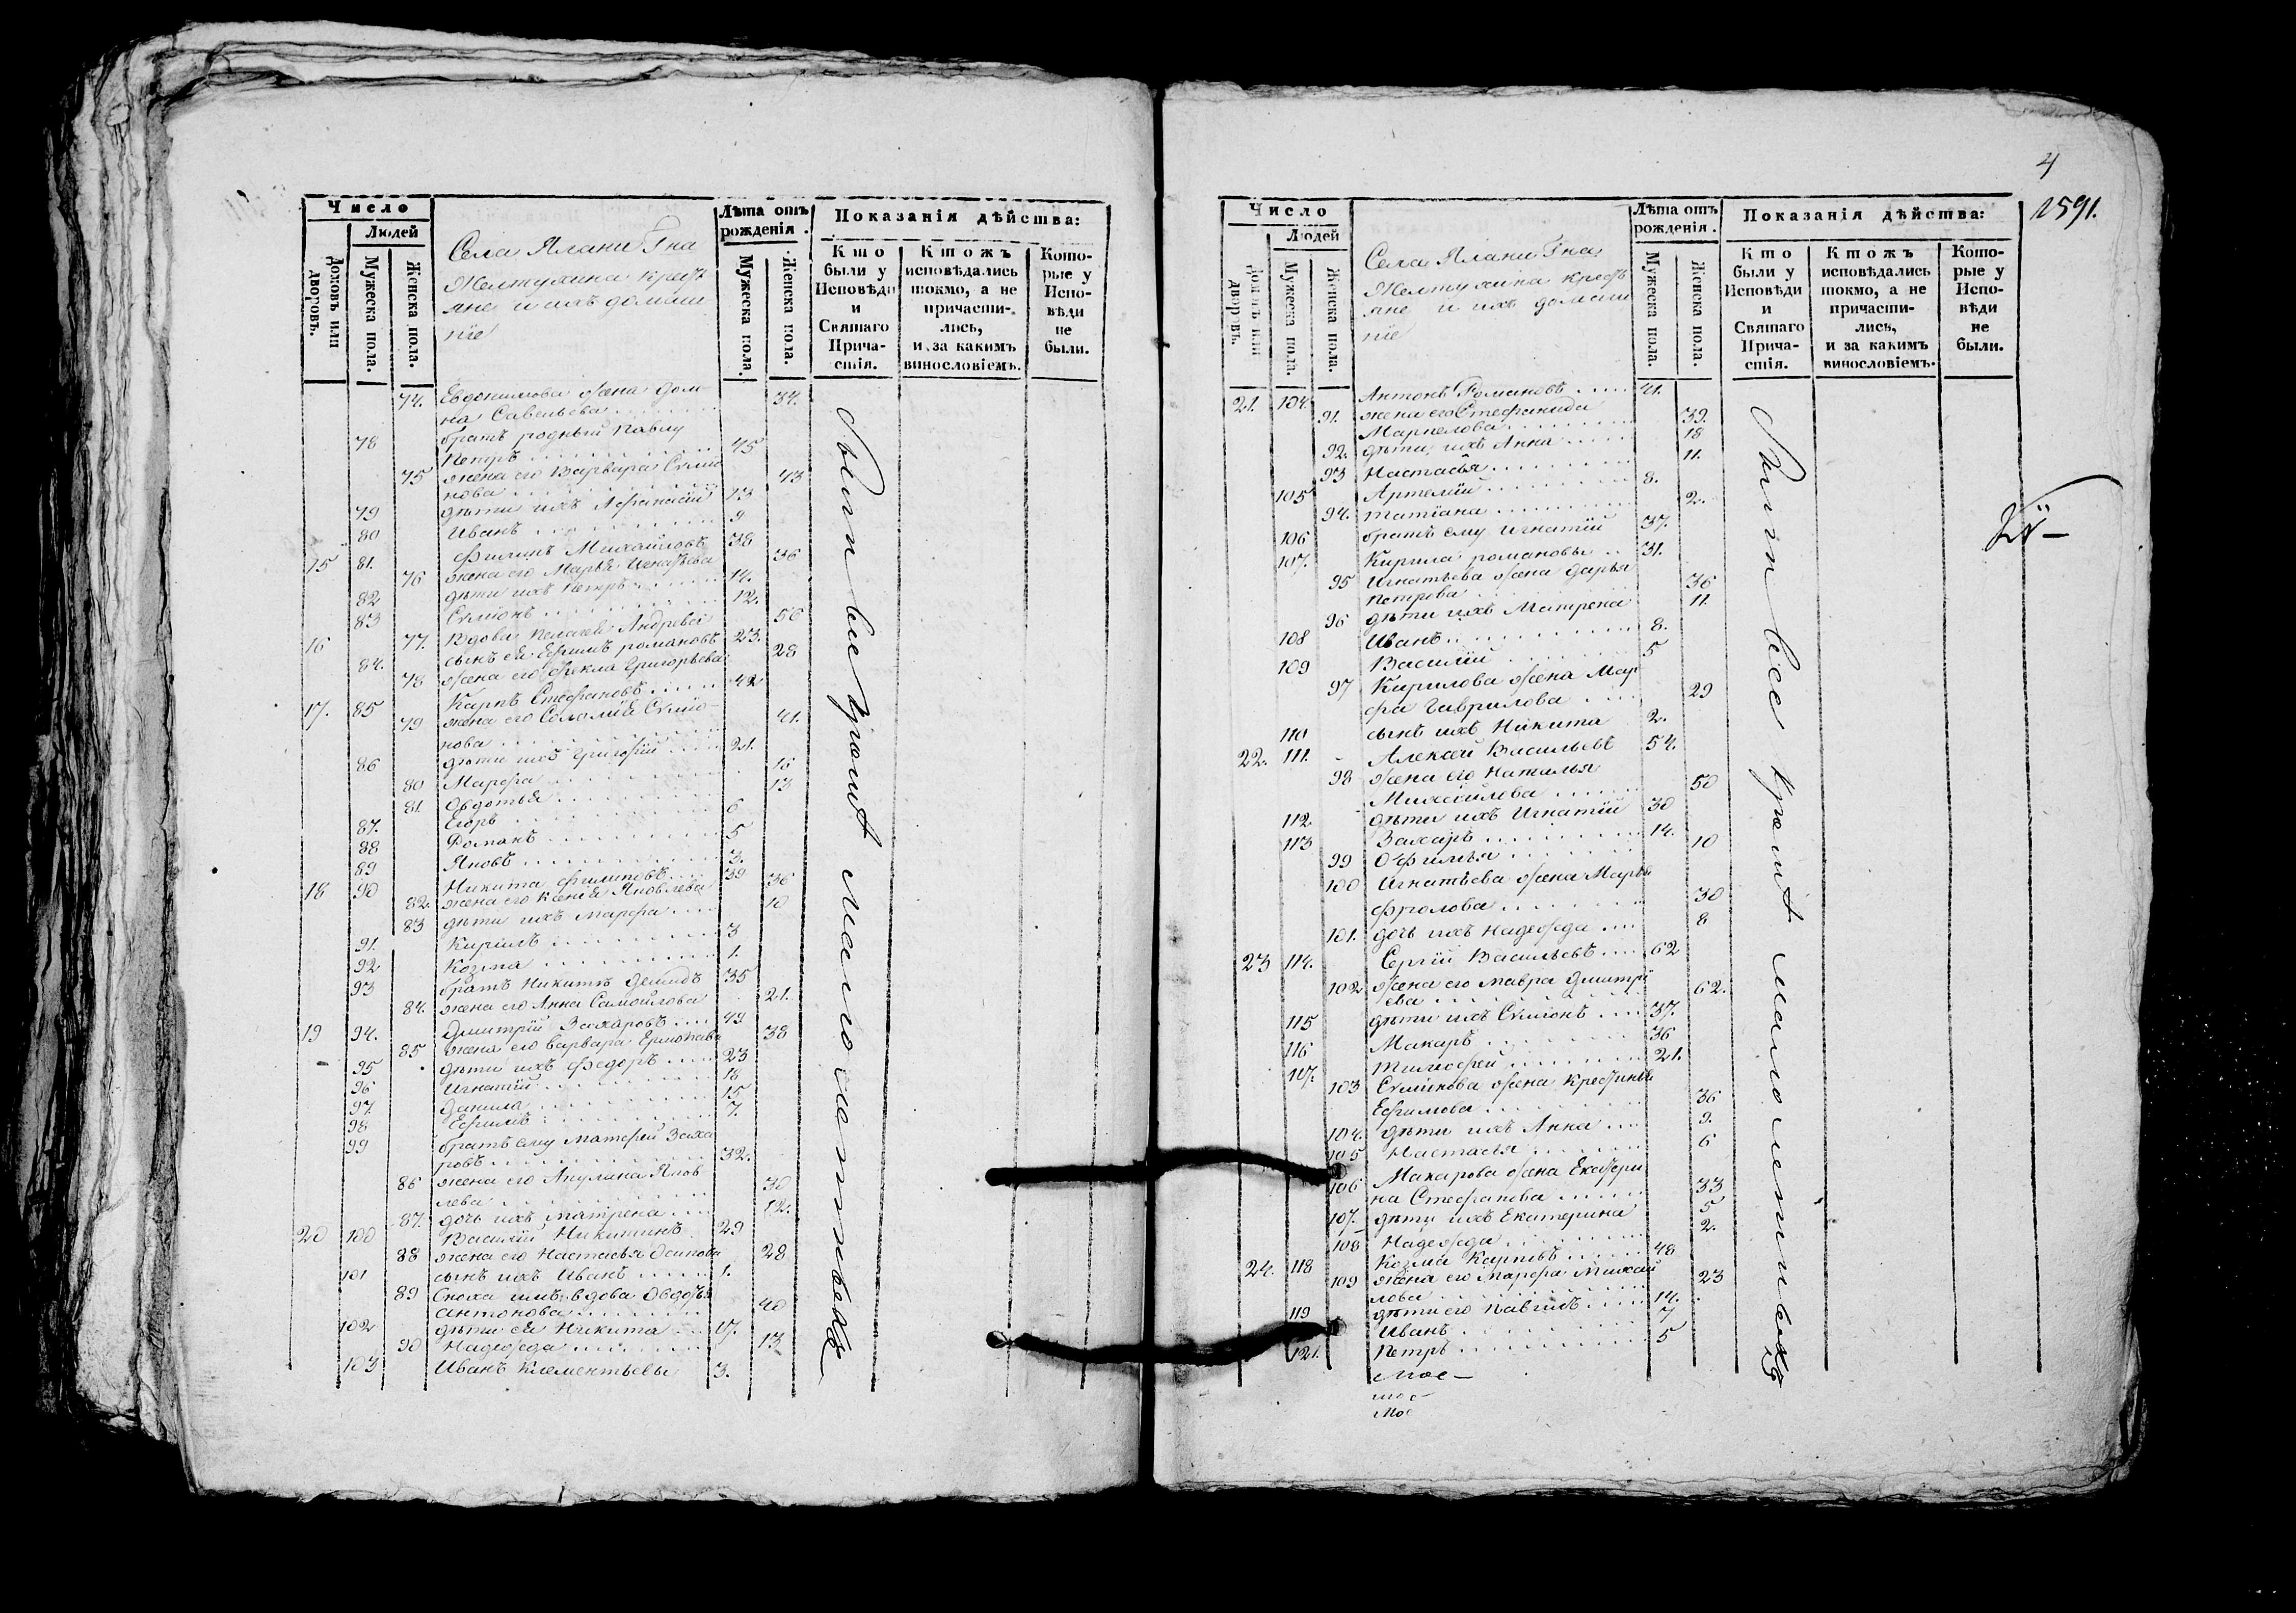 Число
Людей
Домовъ или дворовъ.
Мужеска пола.
Женска пола.
Села Ялани Гна
Желтухина кресть
яне и ихъ домаш
ніе
Лѣта отъ рожденія.
Мужеска пола.
Женска пола.
Показанія дѣйства:
Кто были у Исповѣди и Святаго Причастія.
Ктожъ исповѣдались токмо, а не причастились, и за какимъ винословіемъ.
Которые у Исповѣди не были.
74. Евдокимова жена Дом-
на Савельева 34.
78 братъ родный Павлу
Петръ 45
75 жена его Варвара Семio
нова 43
79 дѣти ихъ Афанасій 13
80 Иванъ 9
15 81. Филипъ Михайловъ 38
76 жена его Марья Игнатьева 36
82 дѣти ихъ Петръ 14.
83 Семіонъ 12.
16 77. Вдова Пелагея Андреева 56
84. сынъ ея Ефимъ Романовъ 23.
78 жена его Фекла Григорьева 28
17. 85 Карпъ Стефановъ 42
79 жена его Соломія Семіо-
нова 41.
86 дѣти ихъ Григорій 21.
80 Марфа 15
81. Овдотья 13
87. Егоръ 6
88 Романъ 5
89 Яковъ 3.
18 90 Никита Филиповъ 39
82. жена его Ксенія Яковлева 36
83 дѣти ихъ Марфа 10
91. Кирилъ 3
92 Козма 1.
93 братъ Никитѣ Демидъ 35
84. жена его Анна Самойлова 21.
19 94. Дмитрій Захаровъ 49
85 жена его Варвара Ермолаева 38
95 дѣти ихъ Федоръ 23
96 Игнатій 18
97 Данила 15
98 Ефимъ 7.
99 братъ ему Матфей Заха
ровъ 32.
86 жена его Акулина Яков
лева 30
87. дочь ихъ Матрена 12.
20 100 Василій Никитинъ 29
88 жена его Настасья Осипова 28
101 сынъ ихъ Иванъ 1.
89 Сноха имъ вдова Овдотья
Антонова 40
102 дѣти ея Никита 17.
90 Надежда 13
103 Иванъ Клементьевы 3.
Були все кромѣ малолетныхъ
4
2591.
Число
Людей
Домовъ или дворовъ.
Мужеска пола.
Женска пола.
Села Ялани Гна
Желтухина кресть
яне и ихъ домаш
ніе
Лѣта отъ рожденія.
Мужеска пола.
Женска пола.
Показанія дѣйства:
Кто были у Исповѣди и Святаго Причастія.
Ктожъ исповѣдались токмо, а не причастились, и за какимъ винословіемъ.
Которые у Исповѣди не были.
21. 104. Антонъ Романовъ 41.
91. жена его Стефанида
Маркелова 39.
92. дѣти ихъ Анна 18
93 Настасья 11.
105 Артемій 8.
94. Татіана 2.
106 братъ ему Игнатій 37.
107. Кирила Романовы 31.
95 Игнатьева жена Дарья
Петрова 36
96 дѣти ихъ Матрена 11.
108 Иванъ 8.
109 Василій 5
97 Кирилова жена Мар
фа Гаврилова 29
110 сынъ ихъ Никита 2.
22. 111. Алексей Васильевъ 54.
98 жена его Наталья
Михайлова 50
112 дѣти ихъ Игнатій 30
113 Захаръ 14.
99 Офимья 10
100 Игнатьева жена Марья
Фролова 30
101. дочь ихъ Надежда 8
23 114. Сергій Васильевъ 62
102 жена его Мавра Дмитрі
ева 62.
115 дѣти ихъ Семіонъ 37.
116 Макаръ 36
107. Тимофей 21.
103 Семіонова жена Крестинья
Ефимова 36
104. дѣти ихъ Анна 9.
105 Настасья 6
106 Макарова жена Екатери
на Стефанова 33
107. дѣти ихъ Екатерина 5
108 Надежда 2.
24. 118 Козма Карповъ 48
109 жена его Марфа Михай
лова 23
119 дѣти его Павилъ 14.
Иванъ 7
121. Петръ 5
Мое-
мое-
Мое
Були все кромѣ малолетныхъ